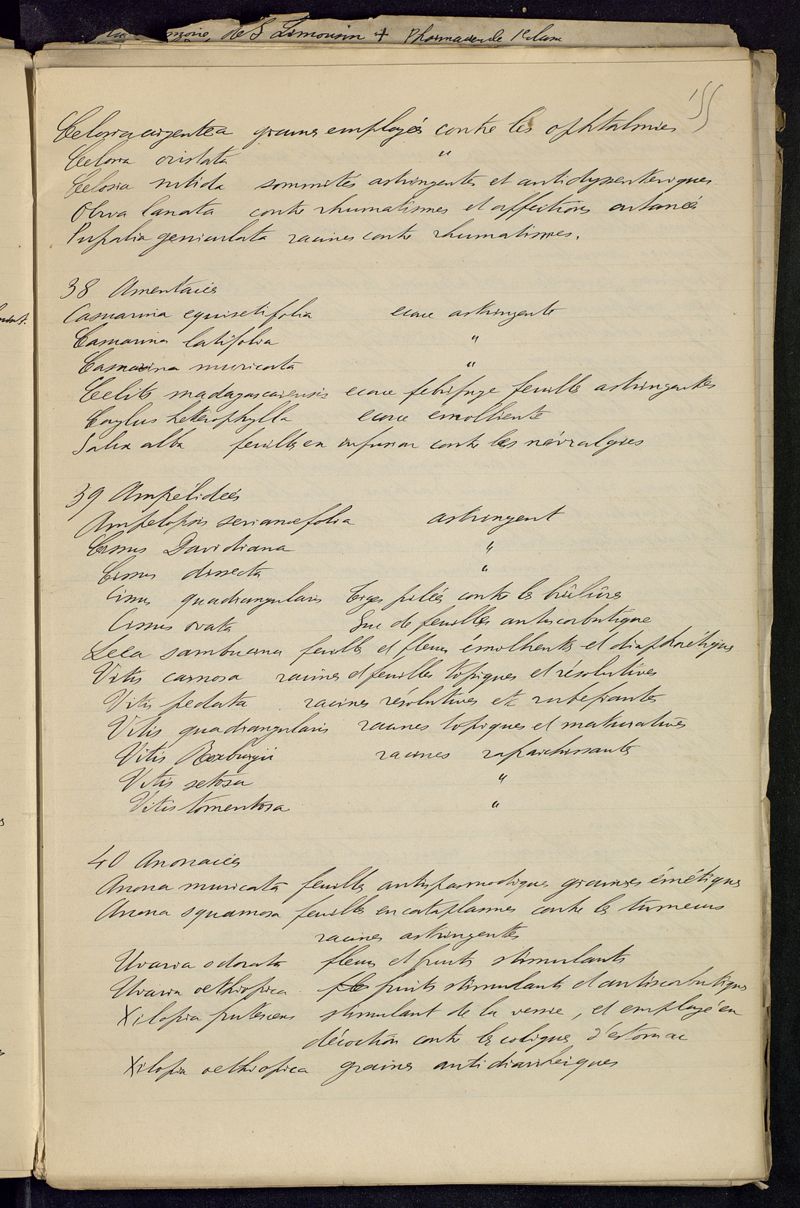 de S Limousin + Pharmacien de 1e classe
155
Celosia argentea graines employées contre les ophtalmies
Celosia cristata "
Celosia nitida sommités astringentes et antidyssenteriques
Œlrva lanata contre rhumatismes et affections cutanées
Pupalia geniculata racines contre rhumatismes.
38 Amentacées
Casuarina equisetifolia écorce astringente
Casuarina latifolia "
Casuarina muricata "
Celtis madagascariensis écorce febrifuge feuilles astringentes
Corylus heterophylla écorce emolliente
Salix alba feuilles en infusion contre les névralgies
39 Ampélidées
Ampelopsis serianæfolia astringent
Cissus Davidiana "
Cissus dissecta "
Cissus quadrangularis Tiges pilées contre les brûlures
Cissus ovata Suc de feuilles antiscorbutique
Leea sambucina feuilles et fleurs émollientes et diaphorétiques
Vitis carnosa racines et feuilles topiques et résolutives
Vitis pedata racines résolutives et rubefiantes
Vitis quadrangularis racines topiques et maturatives
Vitis Roxburgii racines rafraichissantes
Vitis setosa "
Vitis tomentosa "
40 Anonacées
Anona muricata feuilles antispasmodiques graines émétiques
Anona squamosa feuilles en cataplasmes contre les tumeurs
racines astringentes
Uvaria odorata fleurs et fruits stimulants
Uvaria œthiopica fruits stimulants et antiscorbutiques
Xilopia frutescens stimulant de la vessie, et employé en
décoction contre les coliques d'estomac
Xilopia œthiopica graines antidiarrheiques